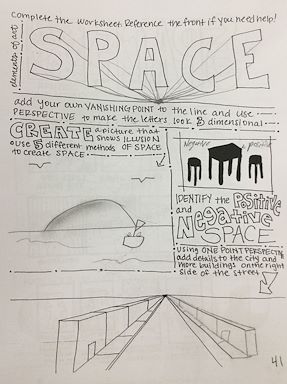 Complete the worksheet. Reference the front if you need help!
elements of art
SPACE
add your own VANISHING POINT to the line and use
PERSPECTIVE to make the letters look 3 dimensional
CREATE a picture that
shows ILLUSION
use 3 different methods OF SPACE
to create SPACE
Negative positive
IDENTIFY the POSITIVE
and Negative
SPACE
using ONE POINT PERSPECTIVE
add details to the city and
more buildings on the right
side of the street
41